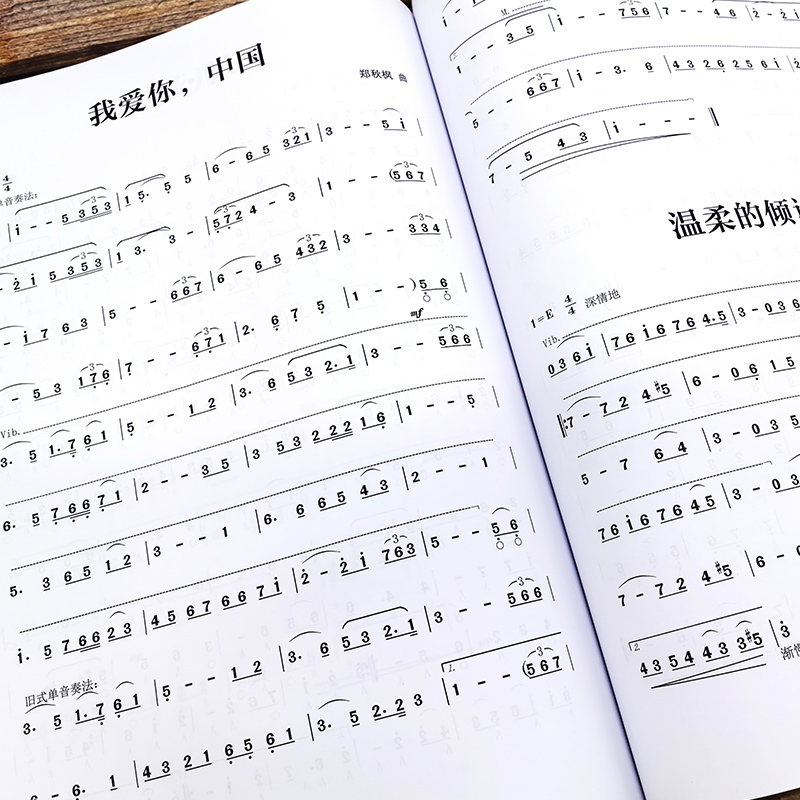 我爱你，中国
郑秋枫 曲
4/4
单音奏法：
| i - - 5 353 | 1 5. 5 5 | 6 - 6 5 321 | 3 - - 5 i |
- 2 i 5 353 | 1 3. 3 - | 572 4 - 3 | 1 - - (567 |
- i 7 6 3 | 5 - - 667 | 6 - 6 5 432 | 3 - - 334 |
- 5 3 176 | 7 - - 671 | 2. 6 7 5 | 1 - - ) 5 6 |
mf
Vib.
3. 5 1.7 6 1 | 5 - - 1 2 | 3. 6 5 3 2. 1 | 3 - - 566 |
6. 5 7667 1 | 2 - - 3 5 | 3 5 3 2 2 2 1 6 | 1 - - 5 |
5. 3 6 5 1 2 | 3 - - 1 | 6. 6 6 5 4 3 | 2 - - 1 |
i. 5 7 6 6 2 3 | 4 5 6 7 6 6 7 i | 2 - 2 i 763 | 5 - - 5 6 |
旧式单音奏法：
3. 5 1.7 6 1 | 5 - - 1 2 | 3. 6 5 3 2. 1 | 3 - - 566 |
6. 1 | 4 3 2 1 6 5 6 1 | 3. 5 2. 2 3 | 1. 1 - - (567 |
M.
2.
1 - - 3 5 | i - - 756 | 7 - - 4 6
5 - - 667 | i - 3. 6 | 4 3 2 6 2 5 6 i
7 - 5 4 3 | i - - - ‖
温柔的倾
1=E 4/4 深情地
Vib.
0 3 6 i | 7 6 i 6 7 6 4.5 | 3 - 0 3 6
‖: 7 - 7 2 4 #5 | 6 - 0 6 1 5
5 - 7 6 4 | 3 - 0 3 5
7 6 i 6 7 6 4 5 | 3 - 0 3
7 - 7 2 4 #5 | 6 - 0
2.
4 3 5 4 4 3 3 #5 | 3
渐慢